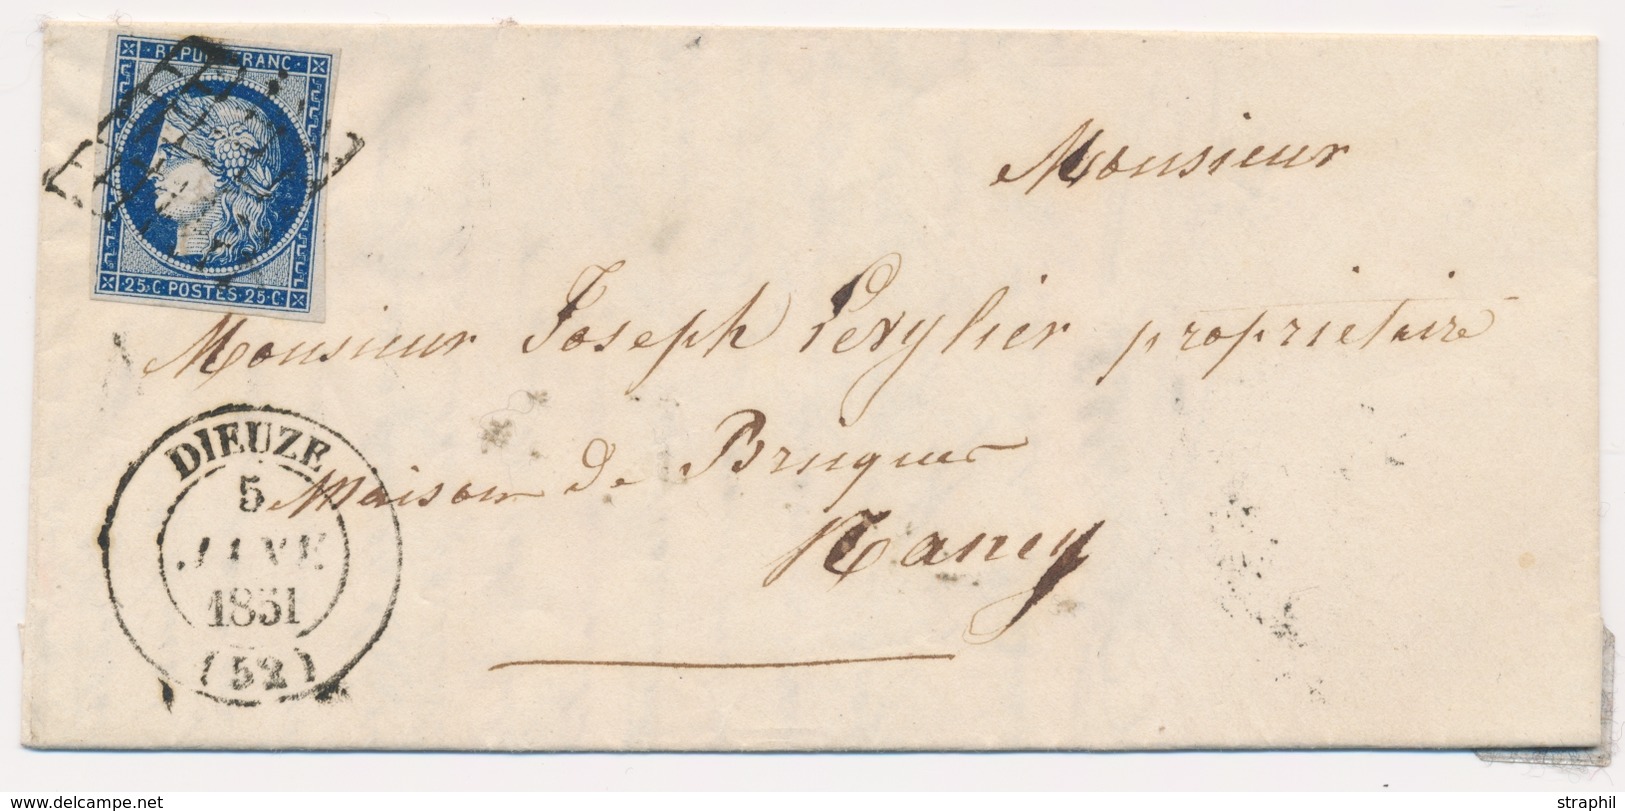 REPUB FRANC
25·C·POSTES·25·C·
Monsieur
Monsieur Joseph Levylier propriétaire
Maison de Bruques
Nancy
DIEUZE
5
JANV
1851
(52)
www.delcampe.net
straphil